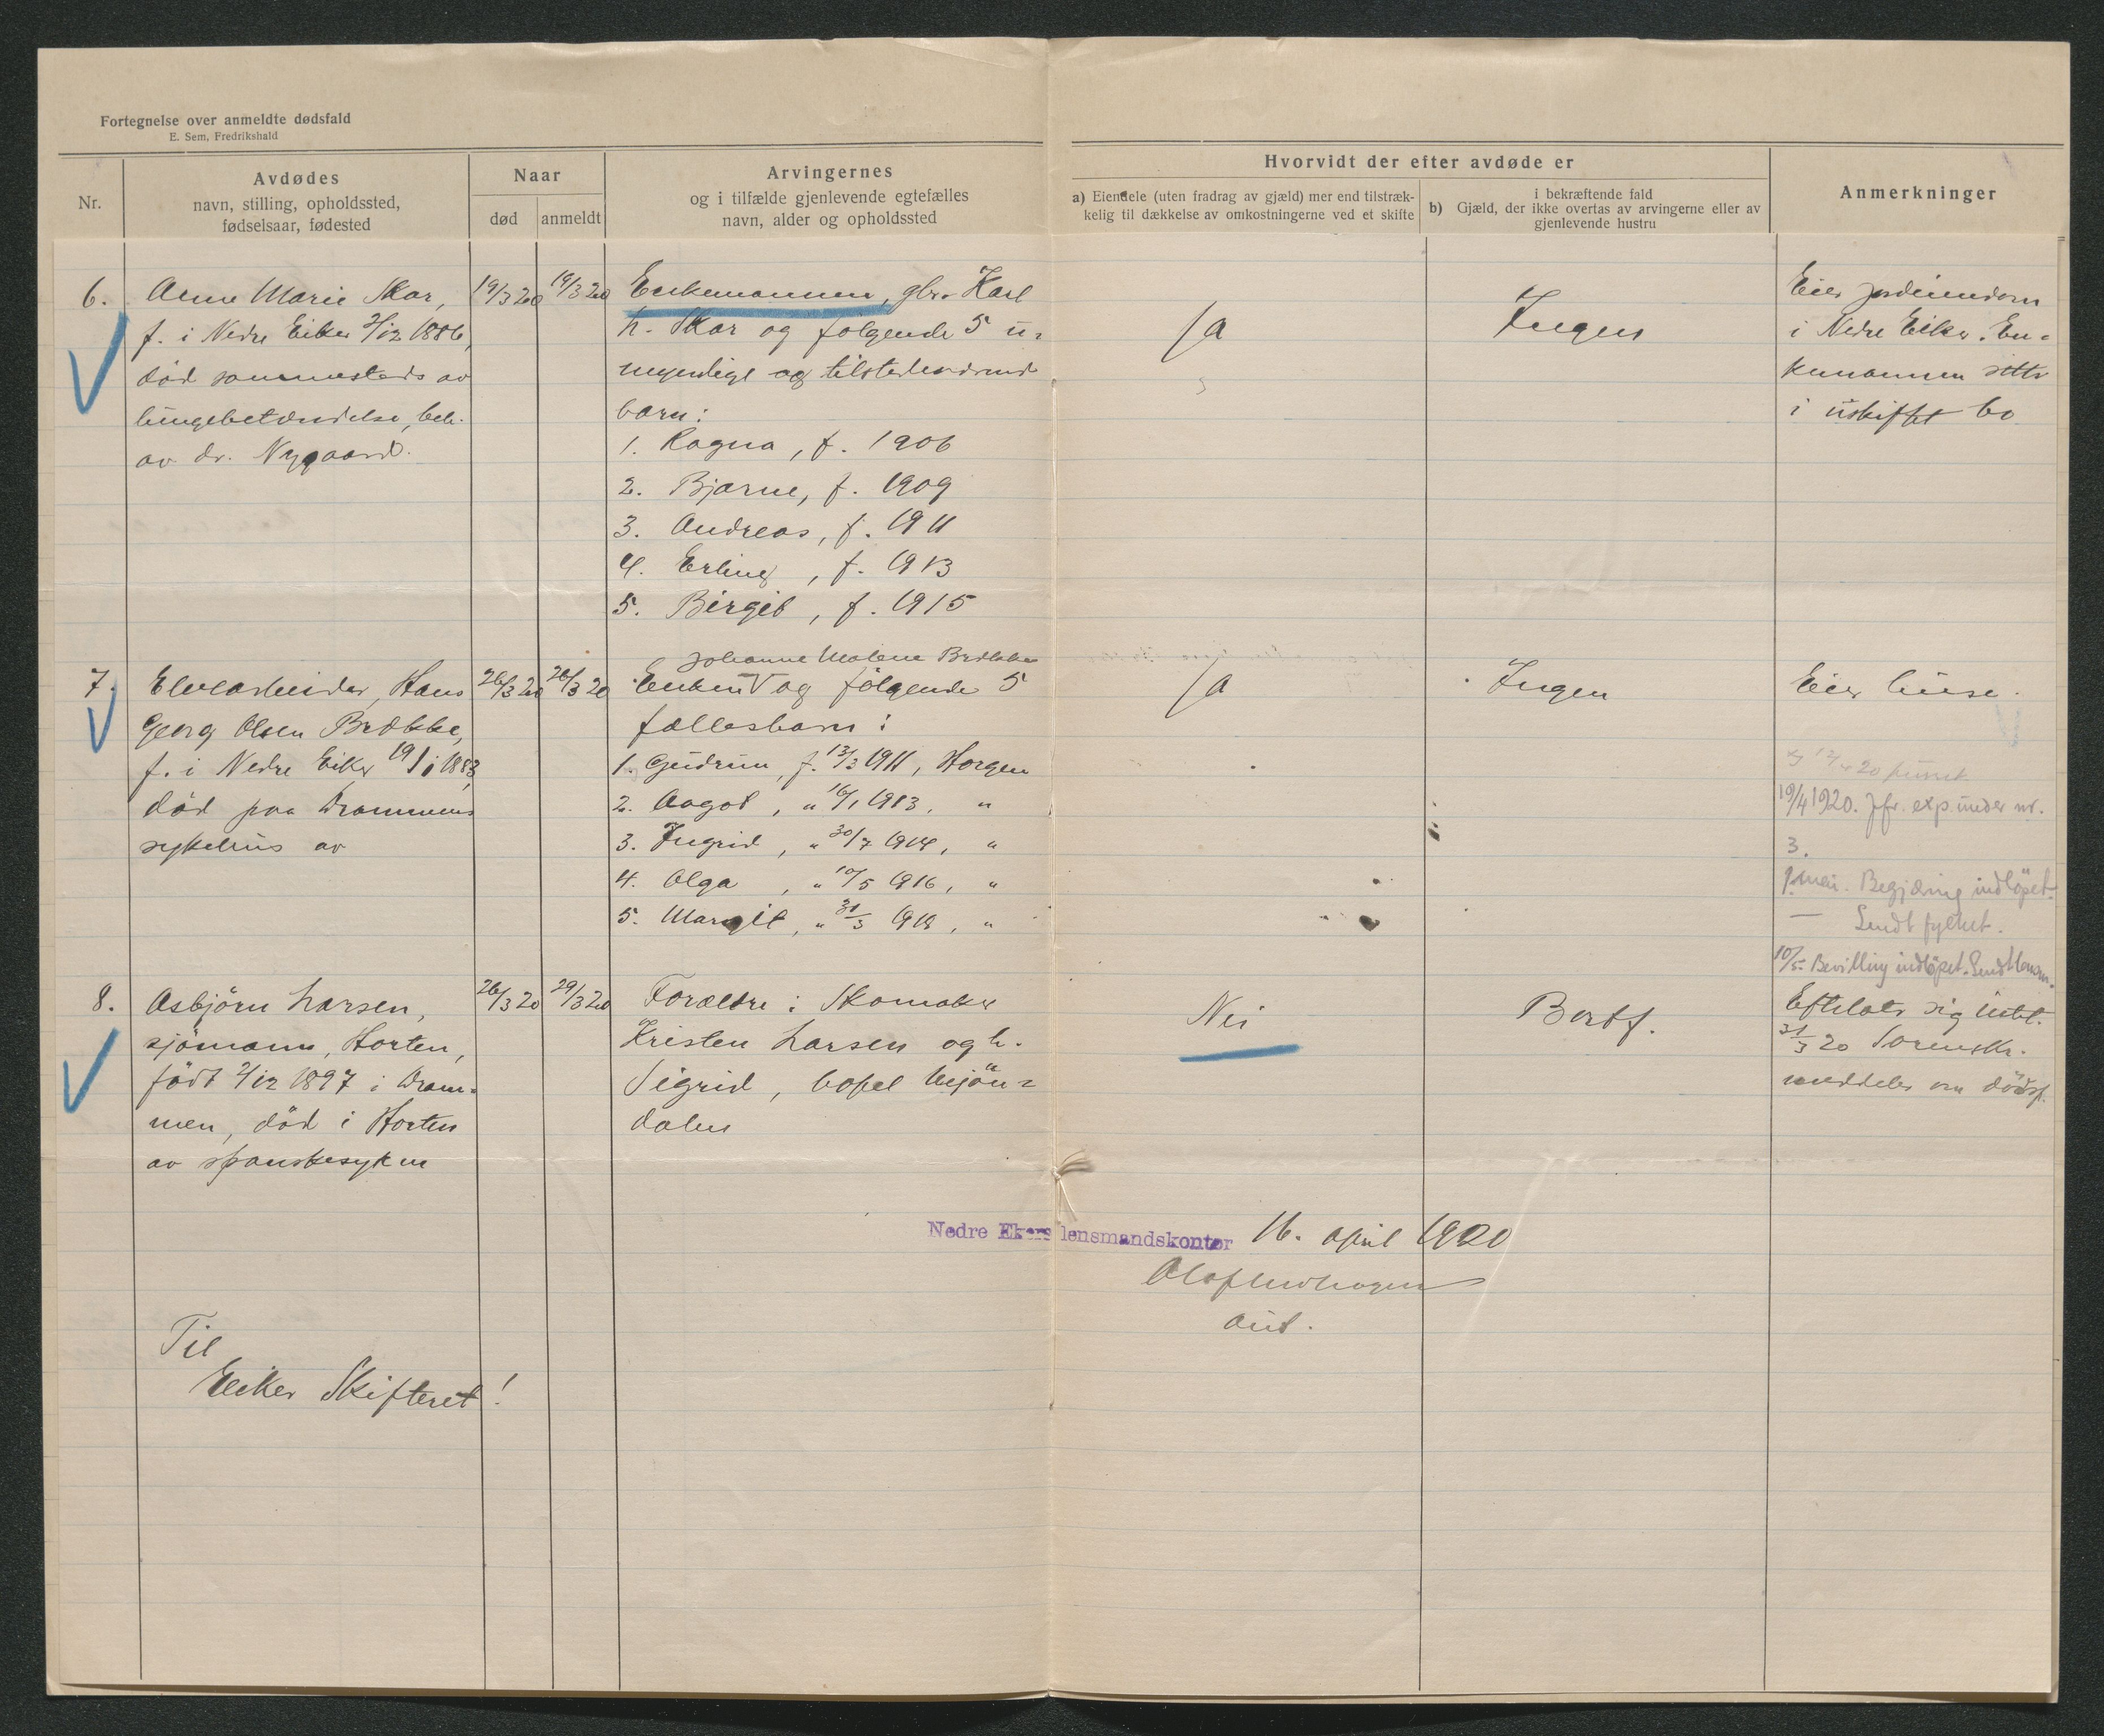 Fortegnelse over anmeldte dødsfald
E. Sem, Fredrikshald
Nr.
Avdødes
navn, stilling, opholdssted,
fødselsaar, fødested
Naar
død
anmeldt
Arvingernes
og i tilfælde gjenlevende egtefælles
navn, alder og opholdssted
Hvorvidt der efter avdøde er
a) Eiendele (uten fradrag av gjæld) mer end tilstræk-
kelig til dækkelse av omkostningerne ved et skifte
b)
i bekræftende fald
Gjæld, der ikke overtas av arvingerne eller av
gjenlevende hustru
Anmerkninger
6.
Anne Marie Skar,
f. i Nedre Eiker 2/12 1886,
död sammesteds av
lungebetændelse, beh.
av dr. Nygaard.
19/3 20
19/3 20
Enkemannen, gbr. Karl
H. Skar og følgende 5 u-
myndige og tilstedeværende
barn:
1. Ragna, f. 1906
2. Bjarne, f. 1909
3. Andreas, f. 1911
4. Erling, f. 1913
5. Birgit, f. 1915
Ja
Ingen
Eier jordeiendom
i Nedre Eiker. En-
kemannen sitter
i uskiftet bo
7.
Elvearbeider, Hans
Georg Olsen Brække,
f. i Nedre Eiker 19/1 1883,
död paa Drammens
sykehus av
26/3 20
26/3 20
Johanne Malene Brække
Enken V og følgende 5
fællesbarn:
1. Gudrun, f. 13/3 1911, Horgen
2. Aagot, " 16/1 1913, "
3. Ingrid, " 30/7 1914, "
4. Olga, " 10/5 1916, "
5. Margit, " 31/3 1918, "
Ja
Ingen
Eier huse.
19/4 1920. Jfr. exp. under nr.
3.
1. mai. Begjæring indløpet.
— Sendt fylket.
10/5. Bevilling indløpet. Sendt
8.
Asbjörn Larsen,
sjömann, Horten,
födt 2/12 1897 i Dram-
men, död i Horten
av spanskesyken
26/3 20
29/3 20
Forældre: Skomaker
Kristen Larsen og h.
Sigrid, bopel Mjön-
dalen
Nei
Bortf.
Efterlater sig intet.
31/3 20 Sorenskr.
meddeler om dödsf.
Nedre Ekers lensmandskontor 16. april 1920
aut.
Til
Eiker Skifteret!